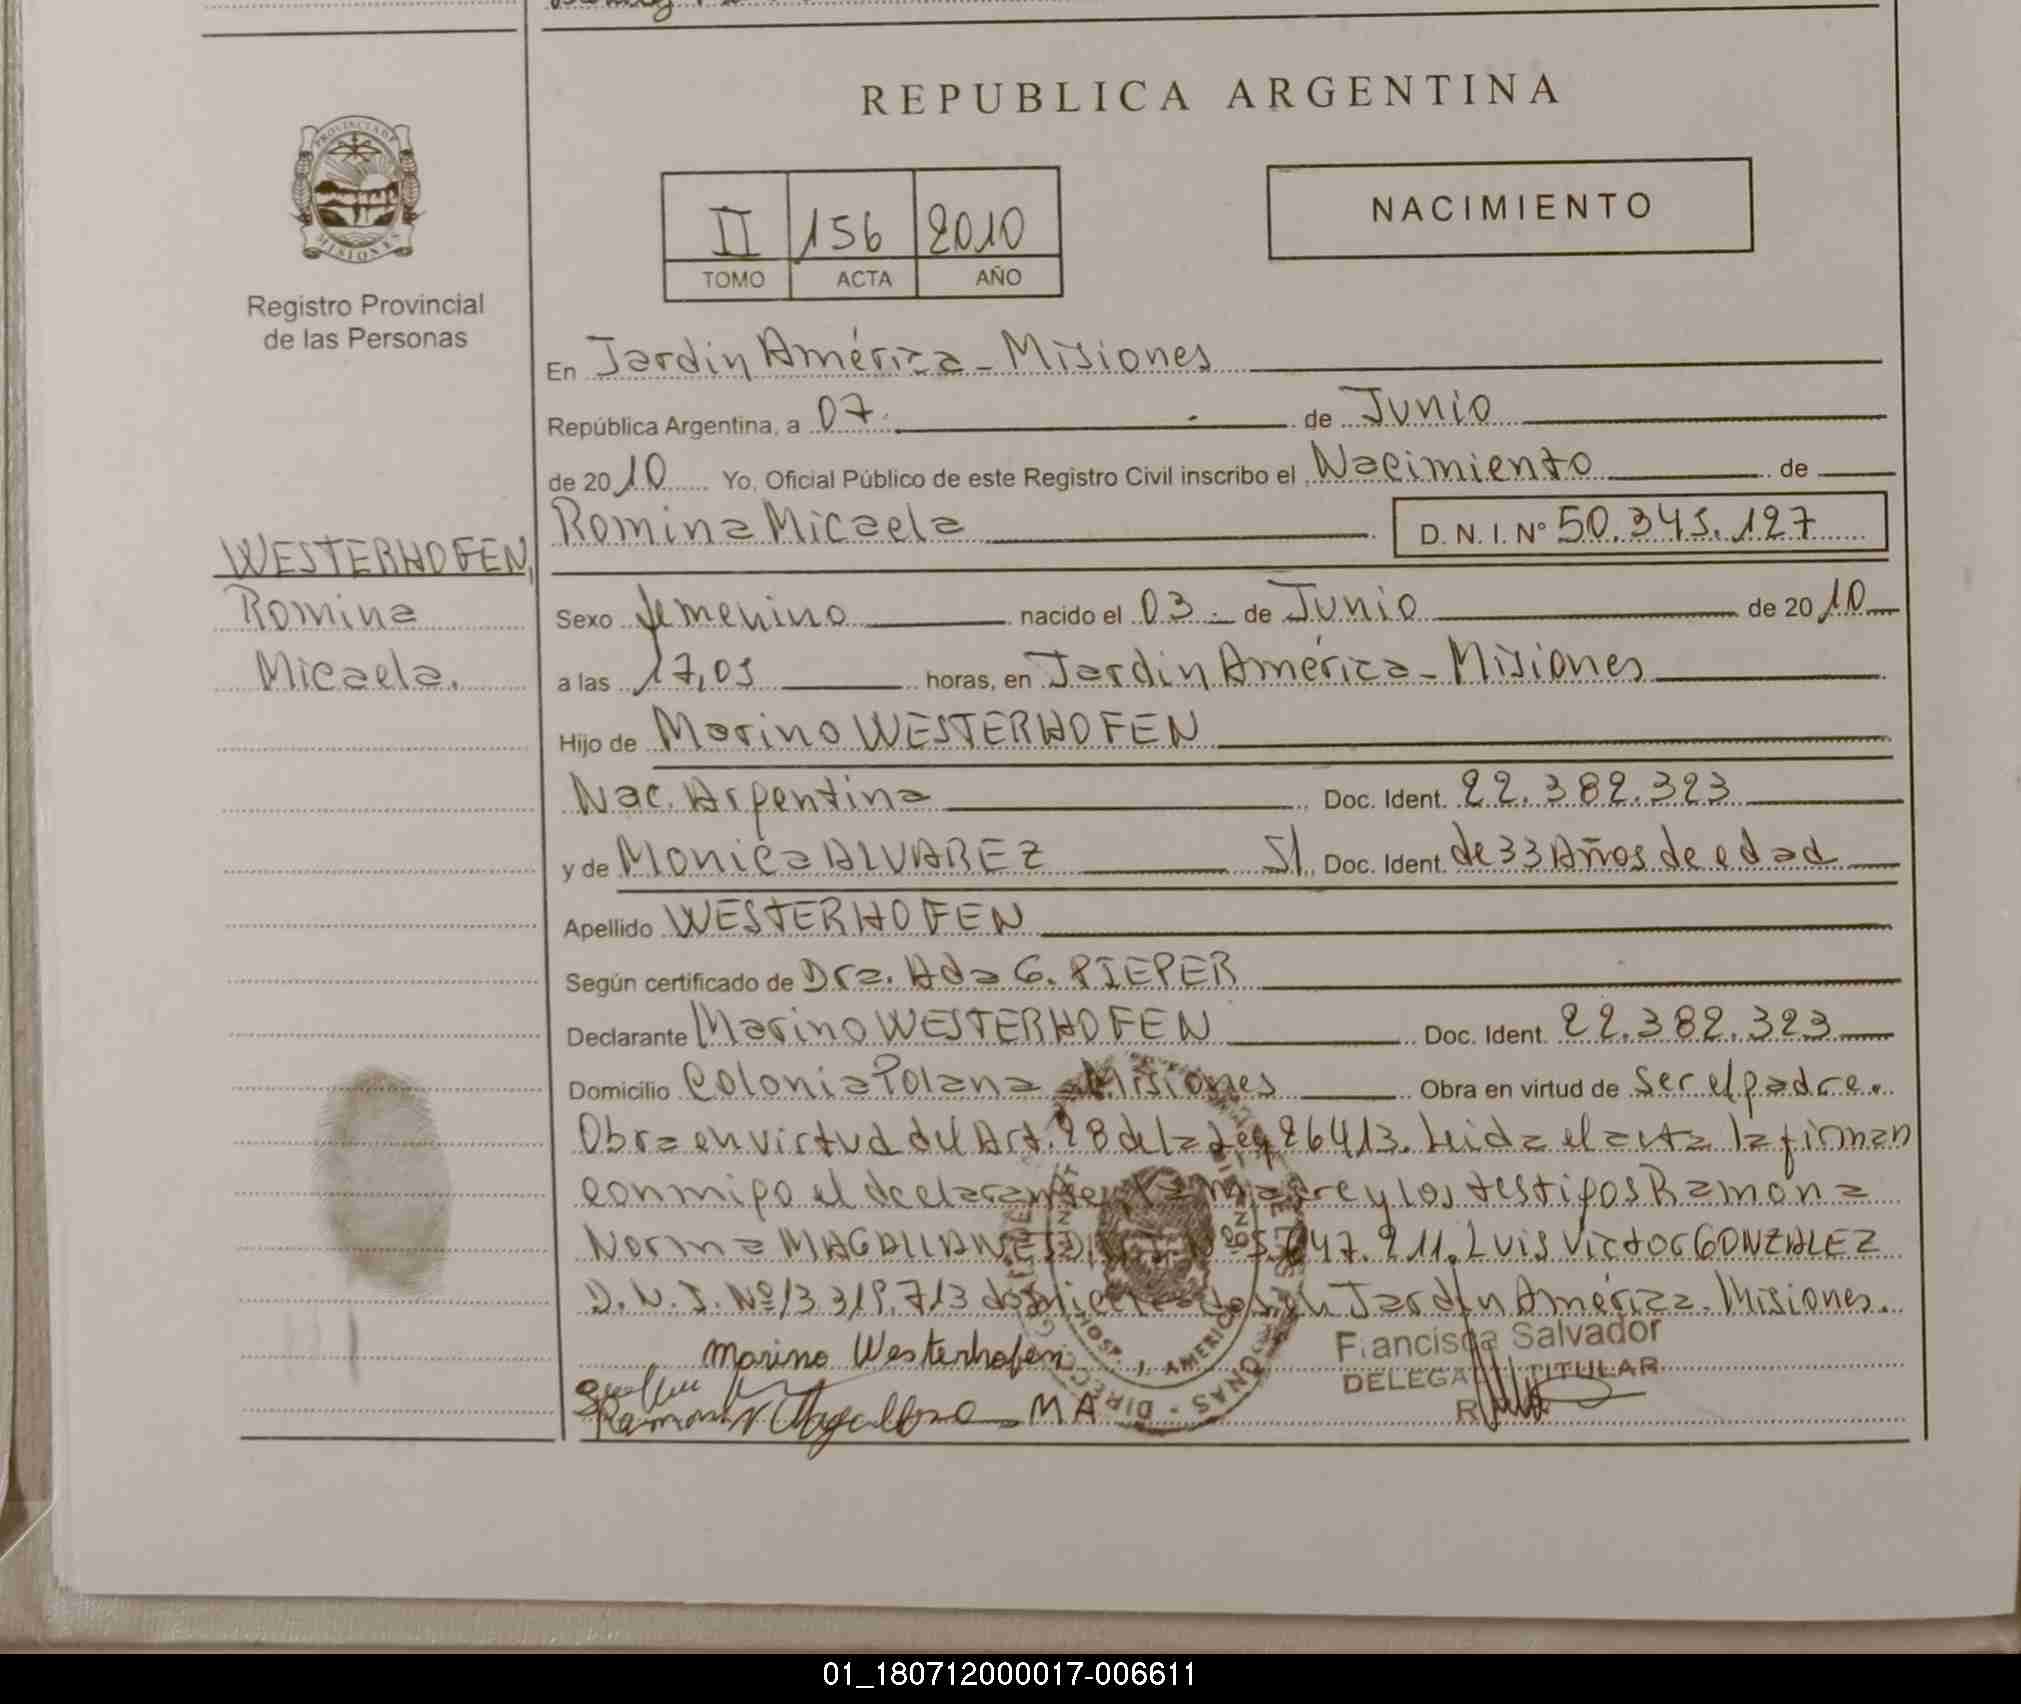 REPUBLICA ARGENTINA
PROVINCIA DE
MISIONES
Registro Provincial
de las Personas
II 156 2010
TOMO ACTA AÑO
NACIMIENTO
En Jardin América - Misiones
República Argentina, a 07 de Junio
de 2010 Yo, Oficial Público de este Registro Civil inscribo el Nacimiento de
Romina Micaela D. N. I. Nº 50.345.127
WESTERHOFEN,
Romina
Micaela.
Sexo femenino nacido el 03 - de Junio de 2010
a las 17,05 horas, en Jardin América - Misiones
Hijo de Marino WESTERHOFEN
Nac. Argentina Doc. Ident. 22.382.323
y de Monica ALVAREZ S/ Doc. Ident. de 33 Años de edad
Apellido WESTERHOFEN
Según certificado de Dra. Ada G. PIEPER
Declarante Marino WESTERHOFEN Doc. Ident. 22.382.323
Domicilio Colonia Polana - Misiones Obra en virtud de Ser el padre.
Obra en virtud del Art. 28 de la Ley 26413. Leida el acta la firman
conmigo el declarante, la madre y los testigos Ramona
Norma MAGALLANES 047.211. Luis Victor GONZALEZ
D.N.I. Nº 13 319.713 domiciliados en Jardin América. Misiones.
Marino Westerhofen
Francisca Salvador
DELEGADA TITULAR
Ramona N Magallanes MA
HOSP. J. AMERICA
01_180712000017-006611